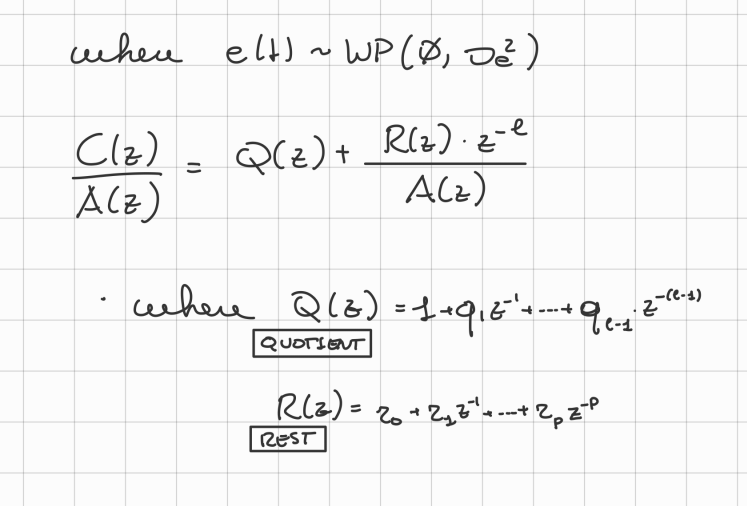 where e(t) ~ WP(Ø, σe²)
C(z)/A(z) = Q(z) + R(z) · z^-ℓ / A(z)
· where Q(z) = 1 + q₁z⁻¹ + ... + q_ℓ-1 · z^-(ℓ-1)
QUOTIENT
R(z) = r₀ + r₁z⁻¹ + ... + r_p z^-p
REST